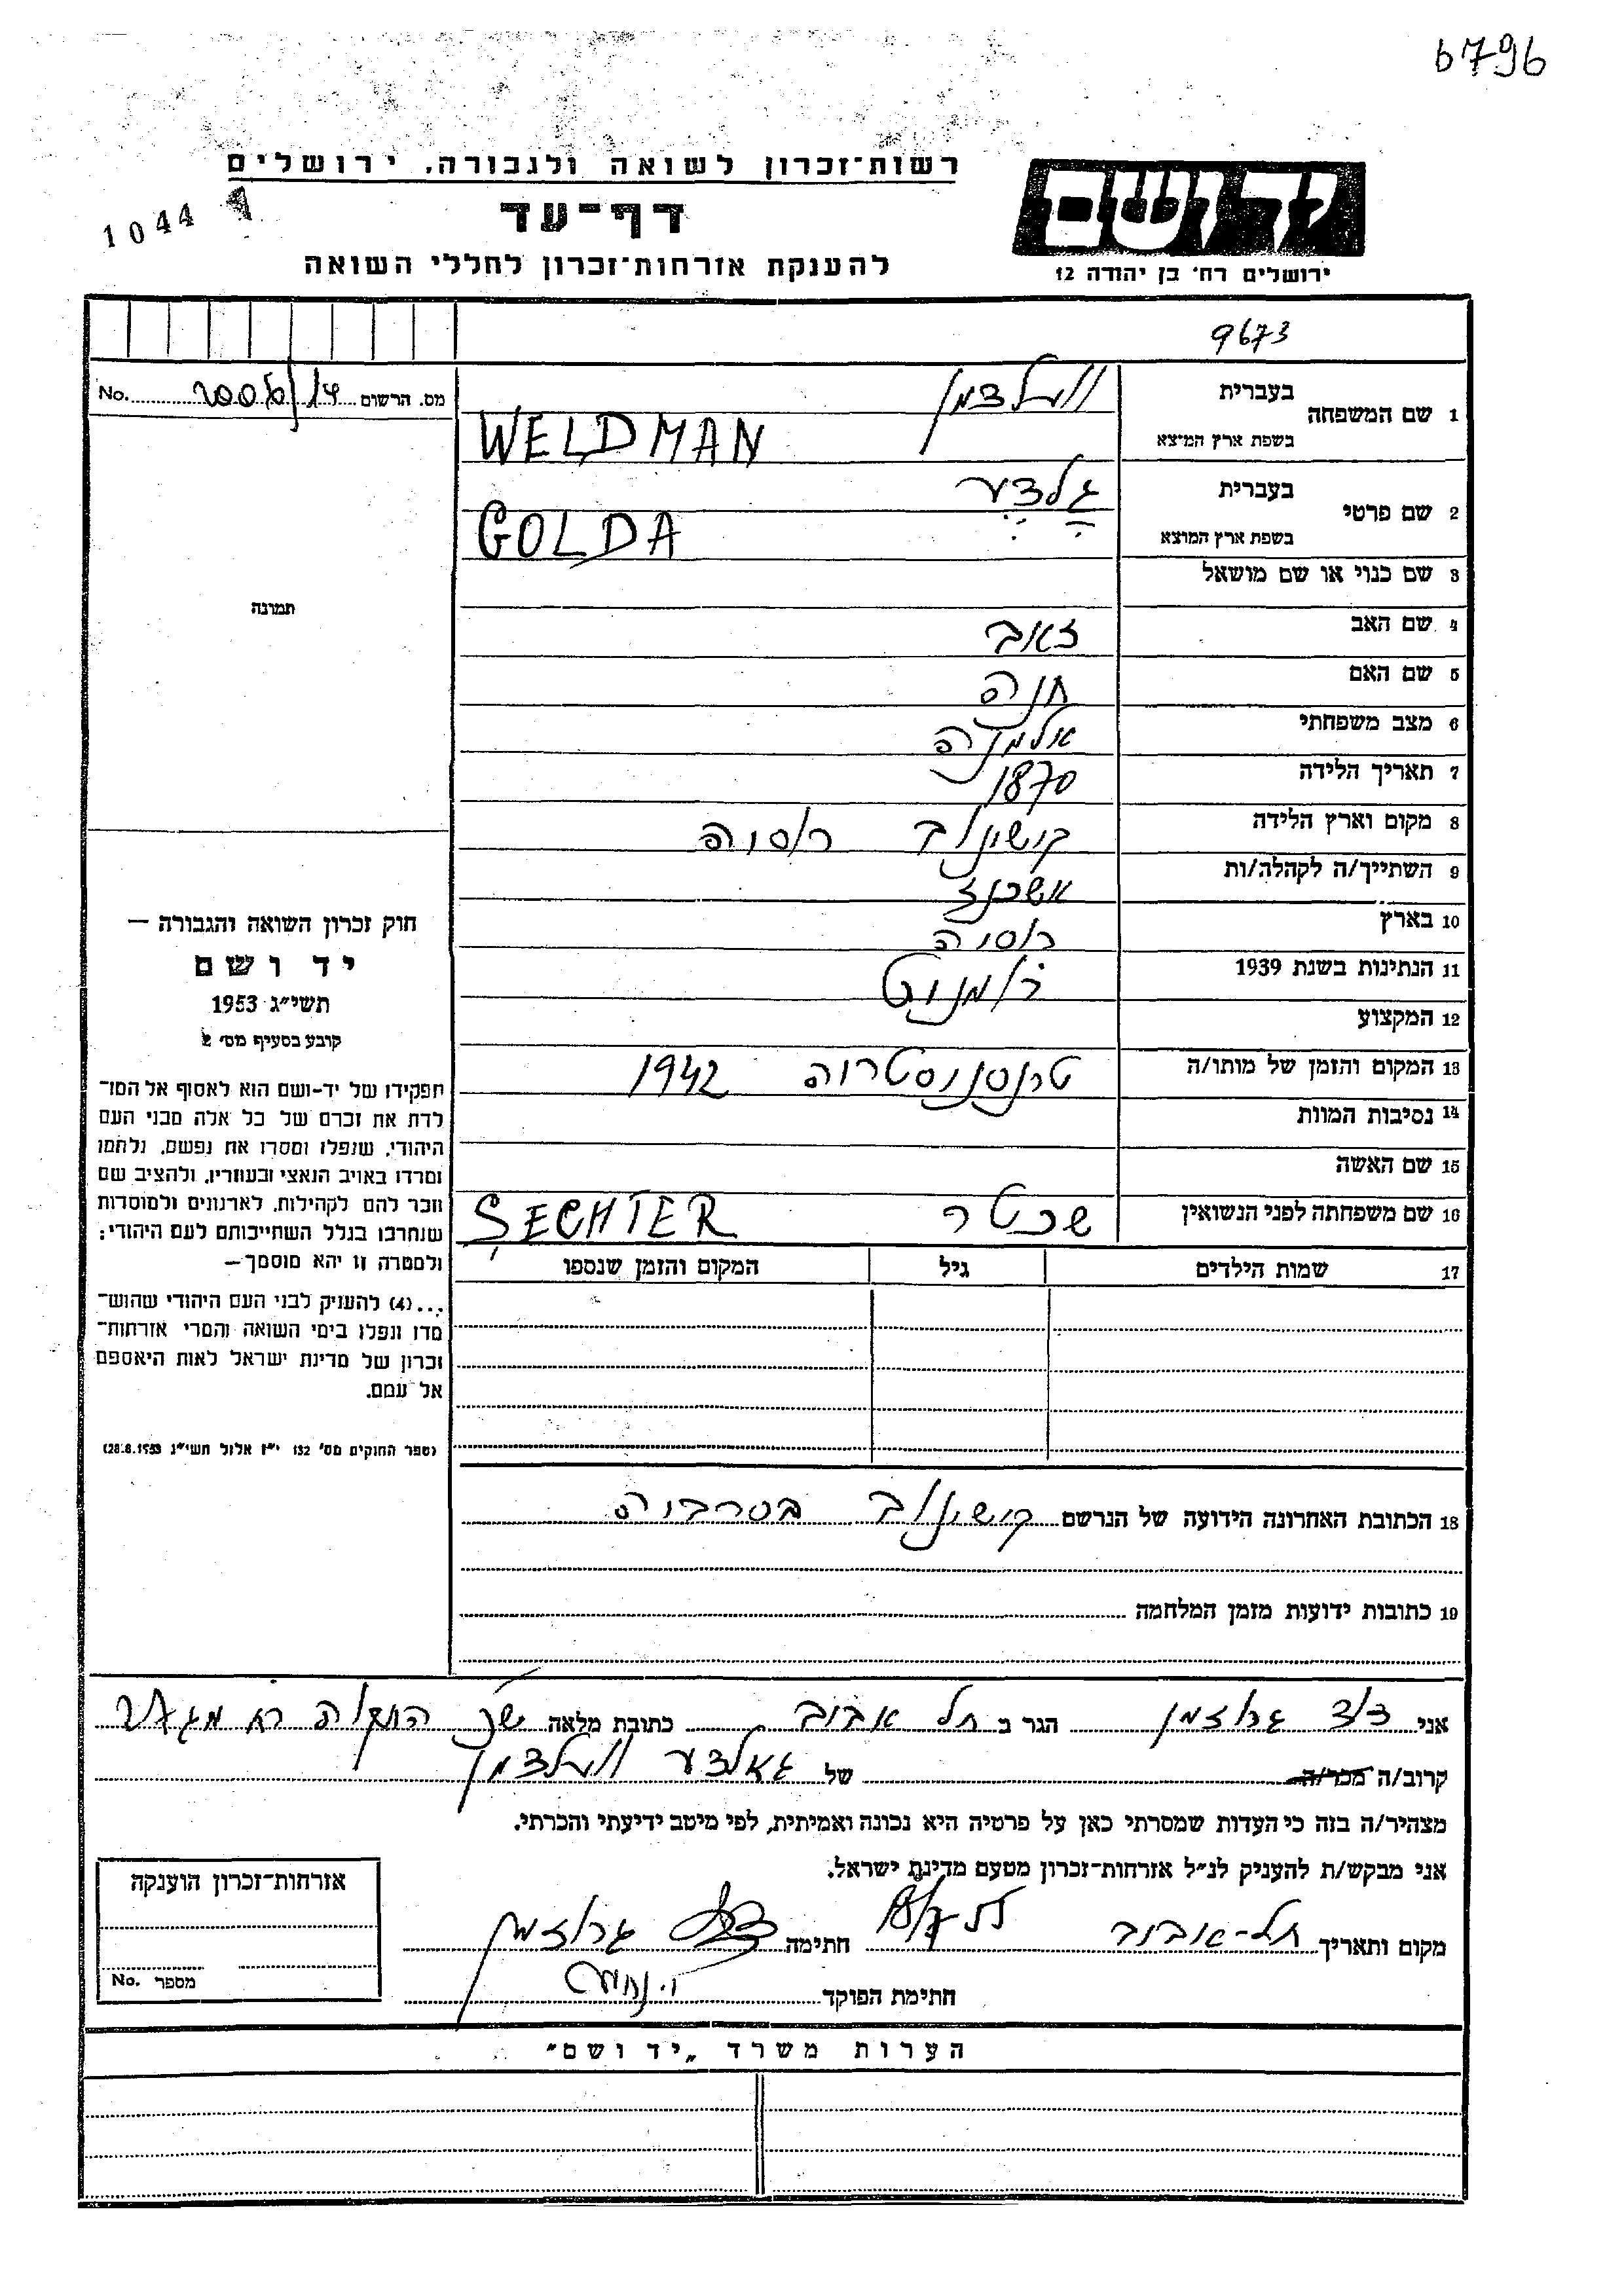 6796
רשות־זכרון לשואה ולגבורה, ירושלים
דף־עד
להענקת אזרחות־זכרון לחללי השואה
1044
יד ושם
ירושלים רח' בן יהודה 12
9673
מס. הרשום No.
1 שם המשפחה בעברית
וועלדמן
בשפת ארץ המוצא WELDMAN
2 שם פרטי בעברית
גלדע
בשפת ארץ המוצא GOLDA
3 שם כנוי או שם מושאל
4 שם האב זאב
5 שם האם חנה
6 מצב משפחתי אלמנה
7 תאריך הלידה 1870
8 מקום וארץ הלידה קישינוב רוסיה
9 השתייך/ה לקהלה/ות אשכנז
10 בארץ רוסיה
11 הנתינות בשנת 1939
12 המקצוע
13 המקום והזמן של מותו/ה טרנסניסטריה 1942
14 נסיבות המוות
15 שם האשה
16 שם משפחתה לפני הנשואין שכטר SECHTER
17 שמות הילדים גיל המקום והזמן שנספו
תמונה
חוק זכרון השואה והגבורה —
יד ושם
תשי״ג 1953
קובע בסעיף מס' 2
תפקידו של יד-ושם הוא לאסוף אל המו־
לדת את זכרם של כל אלה מבני העם
היהודי, שנפלו ומסרו את נפשם, נלחמו
ומרדו באויב הנאצי ובעוזריו, ולהציב שם
וזכר להם לקהילות, לארגונים ולמוסדות
שנחרבו בגלל השתייכותם לעם היהודי;
ולמטרה זו יהא מוסמך—
...(4) להעניק לבני העם היהודי שהוש־
מדו ונפלו בימי השואה והמרי אזרחות־
זכרון של מדינת ישראל לאות היאספם
אל עמם.
(ספר החוקים מס' 132 י״ז אלול תשי״ג 28.8.1953)
18 הכתובת האחרונה הידועה של הנרשם קישינוב בסרביה
19 כתובות ידועות מזמן המלחמה
אני דוד גרוזמן הגר ב תל אביב כתובת מלאה
קרוב/ה מכר/ה של גאלדע וועלדמן
מצהיר/ה בזה כי העדות שמסרתי כאן על פרטיה היא נכונה ואמיתית, לפי מיטב ידיעתי והכרתי.
אני מבקש/ת להעניק לנ״ל אזרחות־זכרון מטעם מדינת ישראל.
מקום ותאריך תל-אביב חתימה דוד גרוזמן
חתימת הפוקד
אזרחות־זכרון הוענקה
מספר No.
הערות משרד „יד ושם״